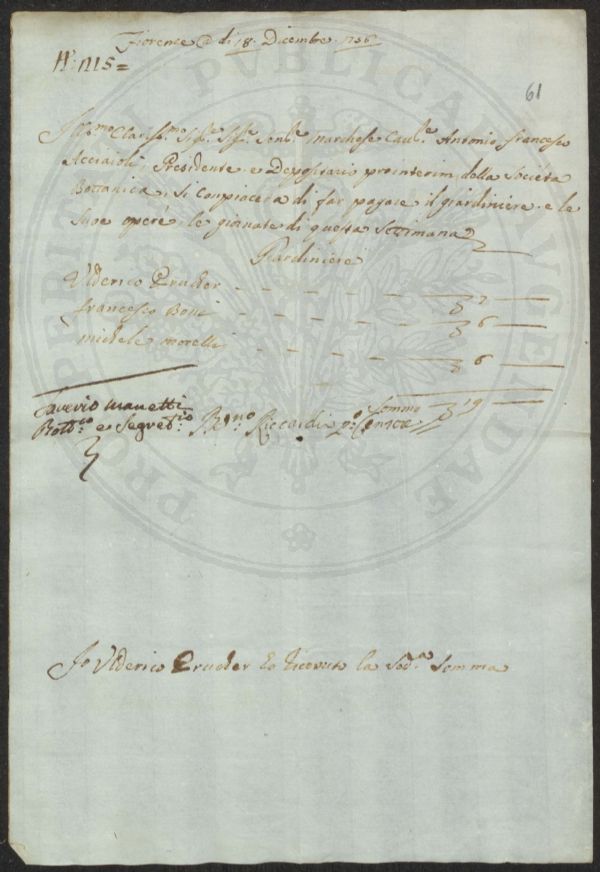 Fiorenza @ di 18. Dicembre. 1756
N°: 1215=
61
Ill.mo Clariss.mo Sig.e Sig.e Sen.re Marchese Cav.re Antonio Francesco
Acciaioli, Presidente e Depositario prointerim della Società
Bottanica, si Compiacerà di far pagare il giardiniere e le
sue opere, le giornate di questa Settimana
Giardiniere
Ulderico Prucher — — — — 7 —
Francesco Boni — — — — 6 —
Michele Morelli — — — — 6 —
Somma 19
Saverio Manetti
Bott.co e Segret.rio
Be:no Riccardi
Io Ulderico Prucher ho ricevuto la Sod.a Somma
PROPERITATI PUBLICAE AUGENDAE